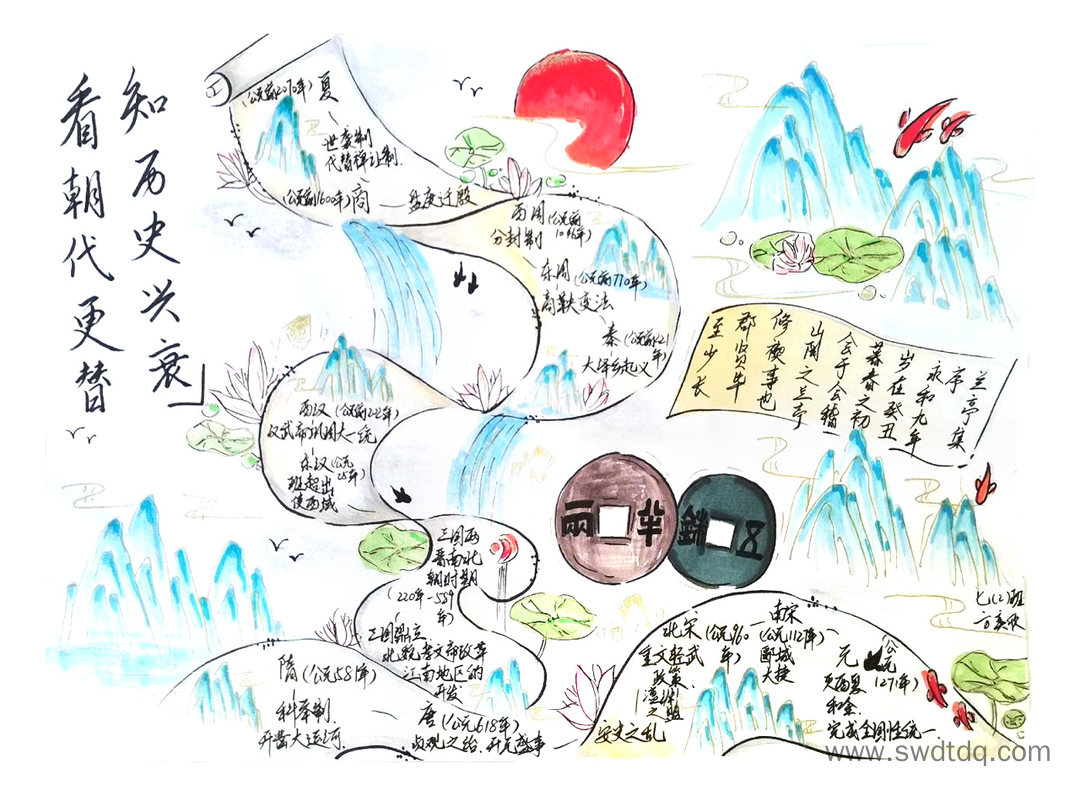 知历史兴衰」
看朝代更替
(公元前2070年)夏
世袭制
代替禅让制.
(公元前1600年)商 — 盘庚迁殷
西周(公元前
1046年)
分封制
东周(公元前770年)
商鞅变法
秦(公元前221
年)
大泽乡起义
西汉(公元前202年)
汉武帝巩固大一统
东汉(公元
25年)
班超出
使西域
三国两
晋南北
朝时期
(220年-589
年)
三国鼎立.
北魏孝文帝改革
江南地区的
开发
隋(公元581年)
科举制.
开凿大运河.
唐(公元618年)
贞观之治.开元盛事
安史之乱
北宋(公元960
年)
重文轻武
政策
澶渊
之盟
南宋
(公元1127年)
郾城
大捷
元
公元
1271年)
灭西夏
和金.
完成全国性统一
兰亭集
序
永和九年
岁在癸丑
暮春之初
会于会稽
山阴之兰亭
修禊事也
群贤毕
至少长
兩 半
銖 五
七(2)班
www.swdtdq.com